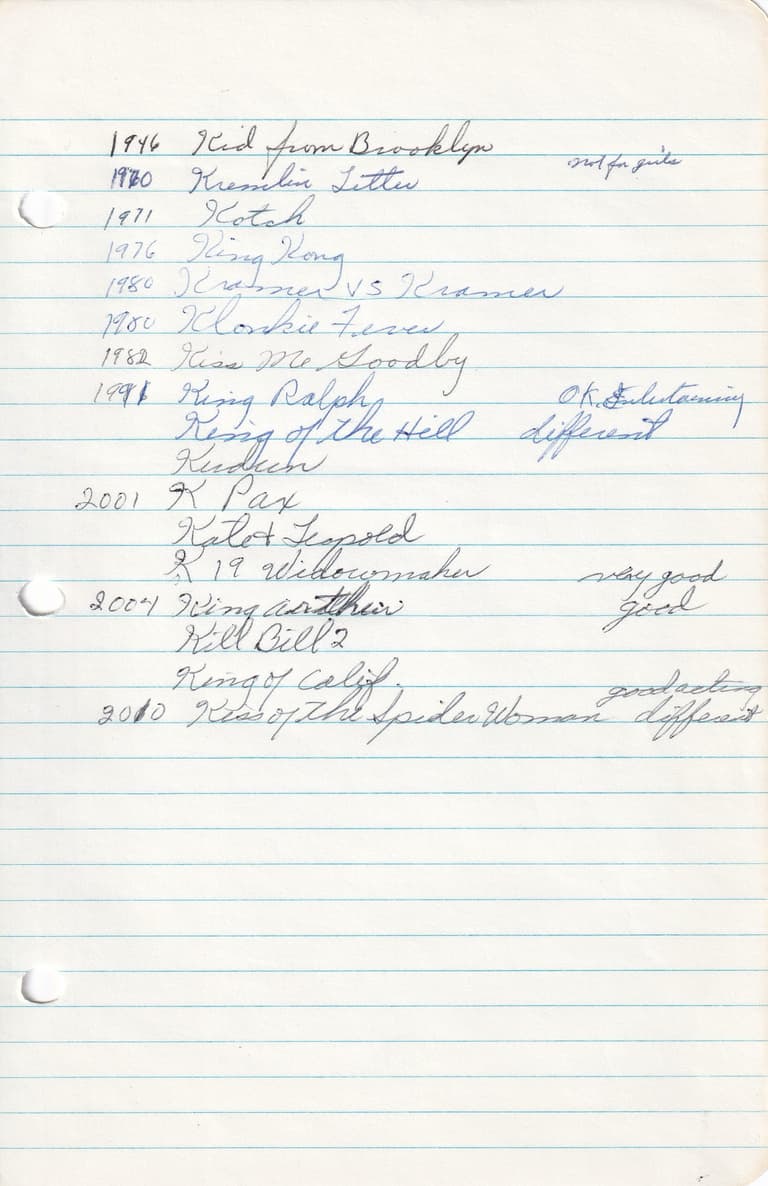 1946 Kid from Brooklyn
1970 Kremlin Letter not for girls
1971 Kotch
1976 King Kong
1980 Kramer VS Kramer
1980 Klonkie Fever
1982 Kiss Me Goodby
1991 King Ralph OK. Entertaining
King of the Hill different
Kudun
2001 K Pax
Kate + Leopold
K 19 Widowmaker very good
2004 King Arthur good
Kill Bill 2
King of Calif.
2010 Kiss of the Spider Woman good acting different